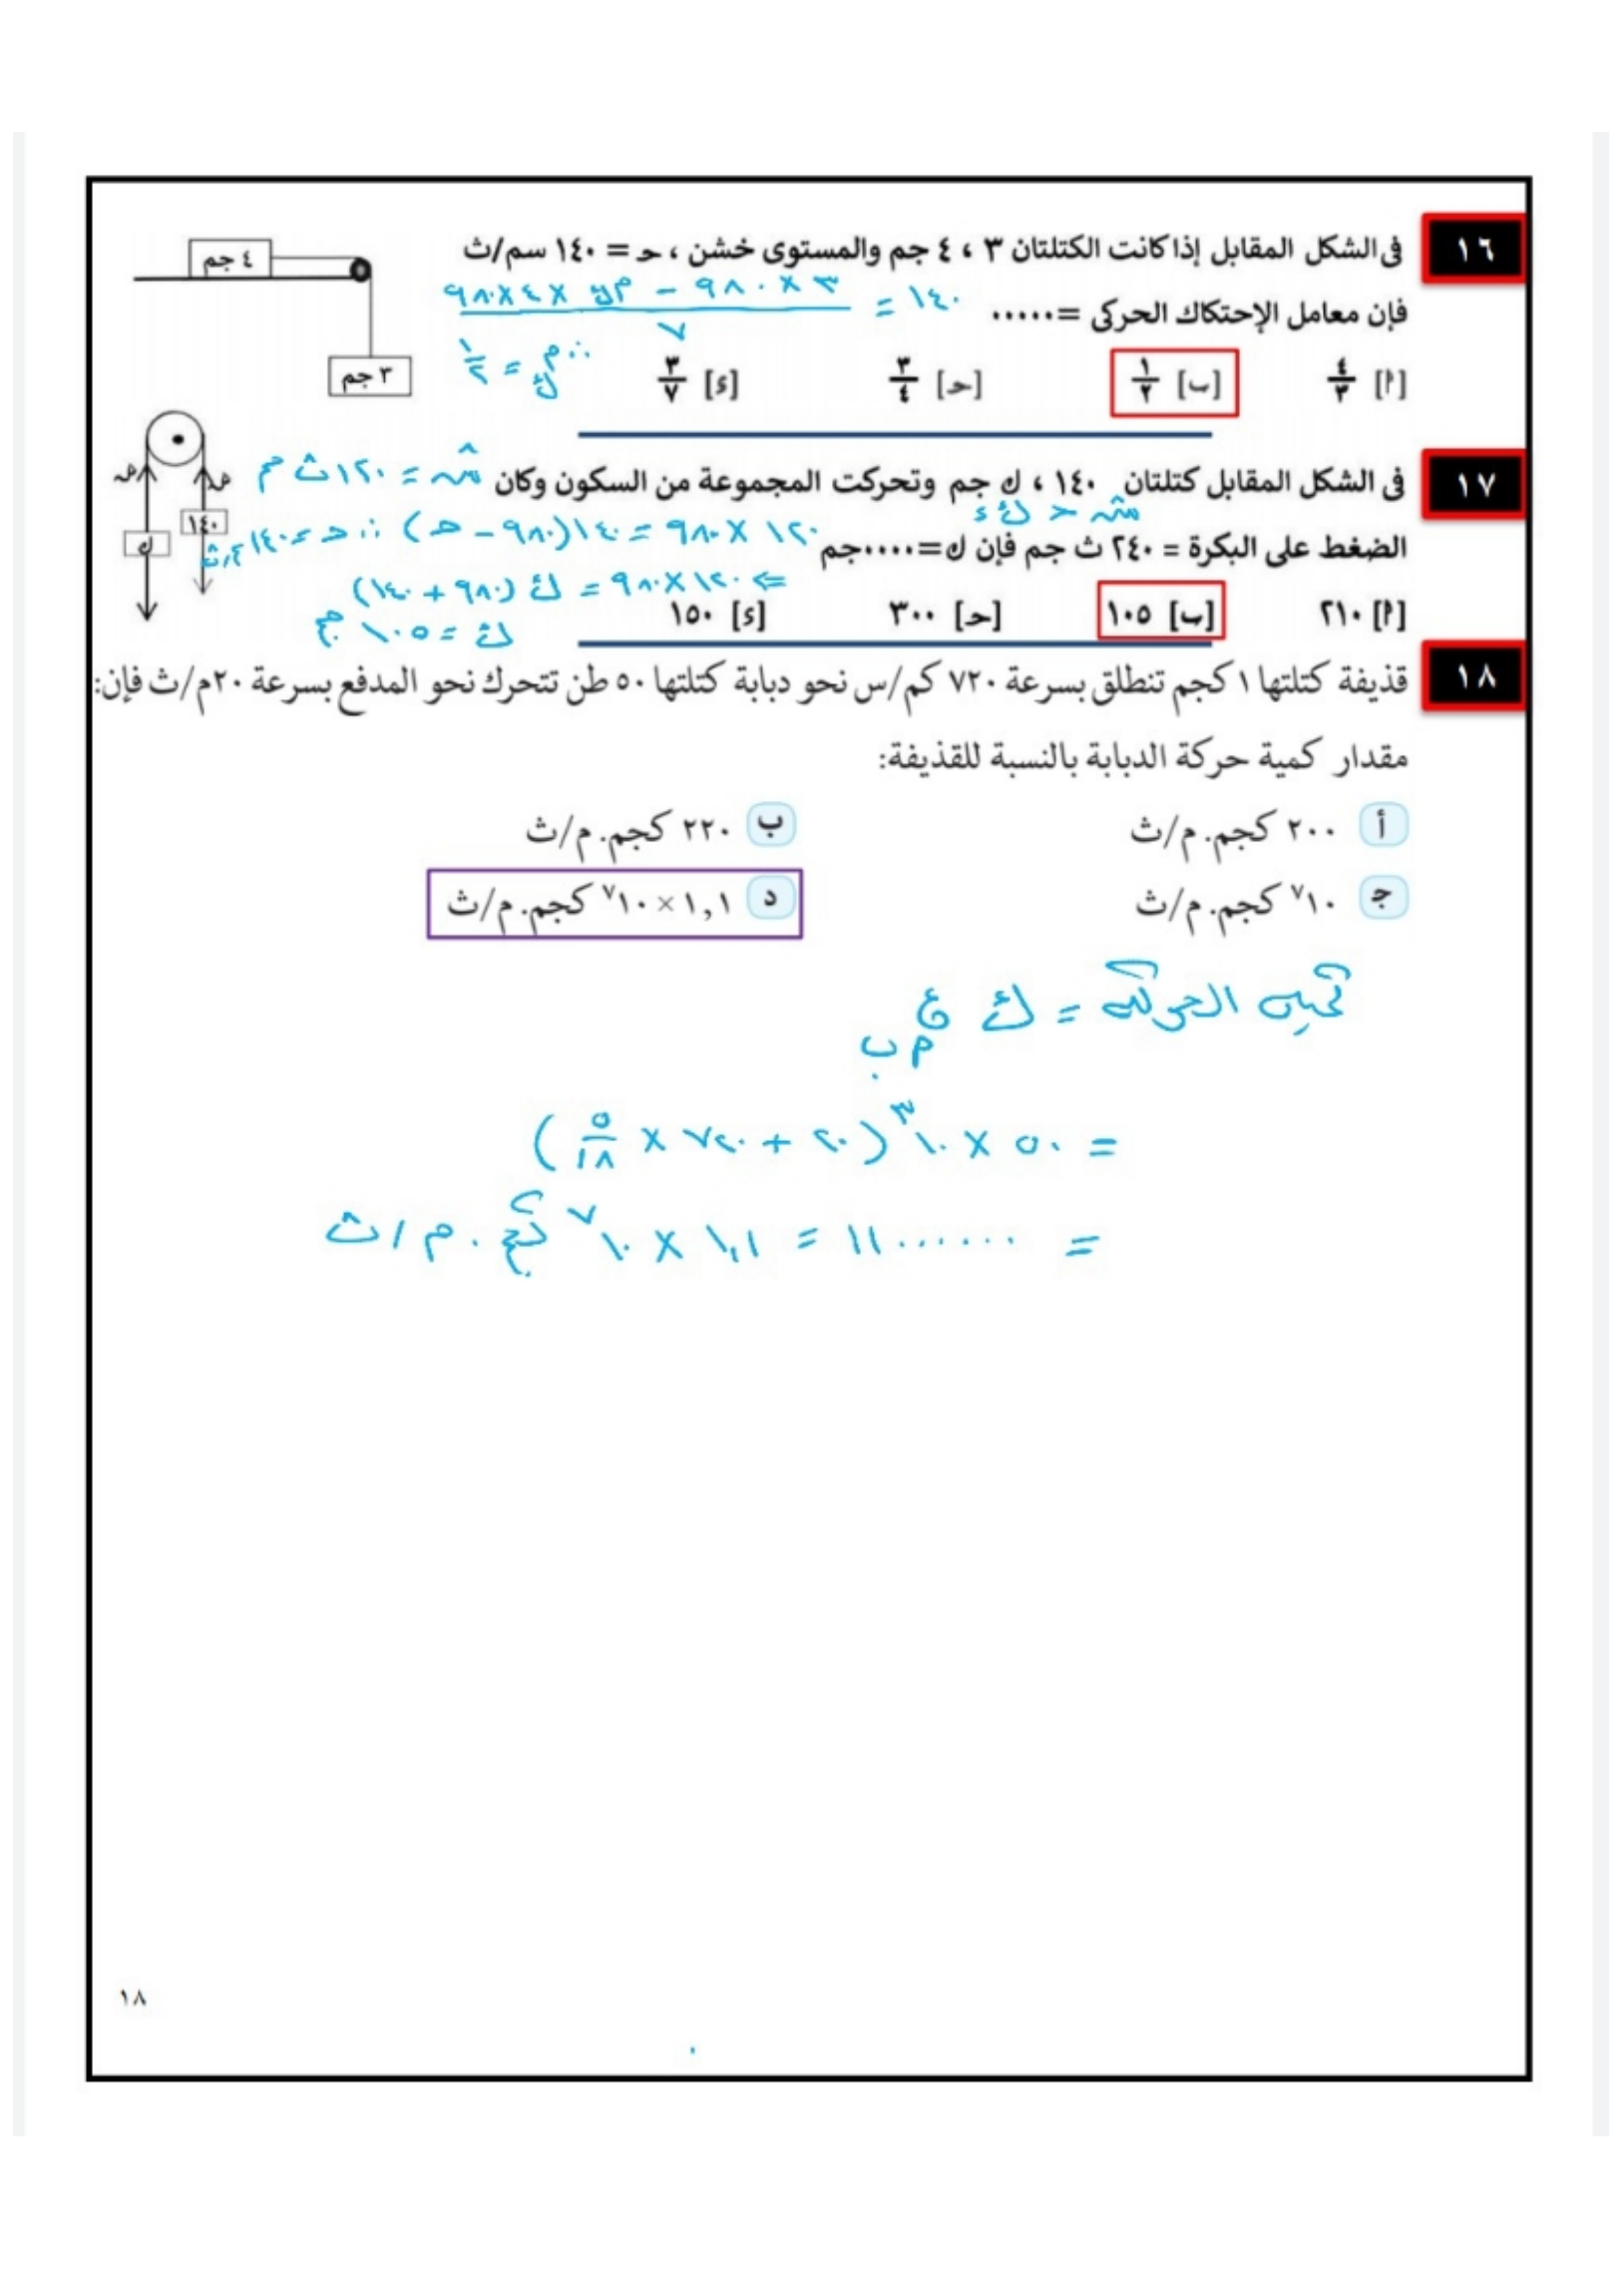 ١٦
فى الشكل المقابل إذا كانت الكتلتان ٣ ، ٤ جم والمستوى خشن ، حـ = ١٤٠ سم/ث
٤ جم
٣ جم
فإن معامل الإحتكاك الحركى =.....
١٤٠ = (٣ × ٩٨٠ - م ك × ٤ × ٩٨٠) / ٧
[أ] ٤/٣ [ب] ١/٢ [حـ] ٣/٤ [ء] ٣/٧
∴ م ك = ١/٢
١٧
فى الشكل المقابل كتلتان ١٤٠ ، ك جم وتحركت المجموعة من السكون وكان
شـ = ١٢٠ ث جم
شـ > ك ء
الضغط على البكرة = ٢٤٠ ث جم فإن ك=....جم
١٢٠ × ٩٨٠ = ١٤٠ (٩٨٠ - حـ) ∴ حـ = ١٤٠ سم/ث
١٤٠
ك
⇐ ١٢٠ × ٩٨٠ = ك (٩٨٠ + ١٤٠)
[أ] ٢١٠ [ب] ١٠٥ [حـ] ٣٠٠ [ء] ١٥٠
ك = ١٠٥ جم
١٨
قذيفة كتلتها ١ كجم تنطلق بسرعة ٧٢٠ كم/س نحو دبابة كتلتها ٥٠ طن تتحرك نحو المدفع بسرعة ٢٠م/ث فإن:
مقدار كمية حركة الدبابة بالنسبة للقذيفة:
أ ٢٠٠ كجم. م/ث
ب ٢٢٠ كجم. م/ث
ج ١٠⁷ كجم. م/ث
د ١,١ × ١٠⁷ كجم. م/ث
كمية الحركة = ك ع م ب
= ٥٠ × ١٠³ (٢٠ + ٧٢٠ × ٥/١٨)
= ١١٠٠٠٠٠٠ = ١,١ × ١٠⁷ كجم. م/ث
١٨